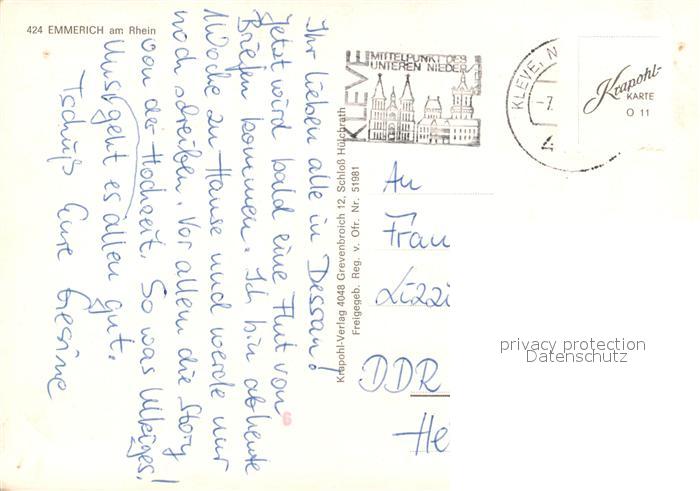 424 EMMERICH am Rhein
Ihr lieben alle in Dessau!
Jetzt wird bald eine Flut von
Briefen kommen. Ich bin ab heute
1 Woche zu Hause und werde nur
noch schreiben. Vor allem die Story
von der Hochzeit. So was Ulkiges!
Uns geht es allen gut.
Tschüß Eure Gesine
6
Krapohl-Verlag 4048 Grevenbroich 12, Schloß Hülchrath
Freigegeb. Reg. v. Ofr. Nr. 51981
KLEVE
MITTELPUNKT DES
UNTEREN NIEDER
KLEVE, N
-7.
4
Krapohl-
KARTE
O 11
An
Frau
Lizzi
DDR
He
privacy protection
Datenschutz